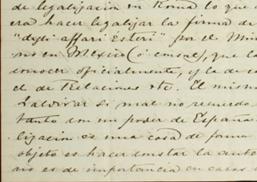 de legalización en Roma lo que
era hacer legalizar la firma de
"degli affari Esteri" por el Min
no en México (i consul), que la
conocer oficialmente, y le de ce
el de Relaciones etc. El mismo
Zaldivar si mal no recuerdo
tanto con un poder de España.
lización es una cosa de forma
objeto es hacer constar la auto
no es de importancia en casos